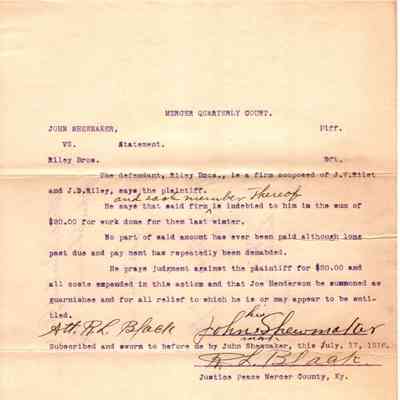 MERCER QUARTERLY COURT.
JOHN SHEWMAKER, Plff.
VS. Statement.
Riley Bros. Dft.
The defendant, Riley Bros., is a firm composed of J.V.Rilet
and J.D.Riley, says the plaintiff.
and each member thereof
He says that said firm is indebted to him in the sum of
$20.00 for work done for them last winter.
No part of said amount has ever been paid although long
past due and pay ment has repeatedly been demanded.
He prays judgment against the plaintiff for $20.00 and
all costs expended in this action and that Joe Henderson be summoned as
guarnishee and for all relief to which he is or may appear to be enti-
tled.
his
Att R.L. Black John x Shewmaker
mark
Subscribed and sworn to before me by John Shewmaker, this July, 17, 1916.
R. L. Black.
Justice Peace Mercer County, Ky.